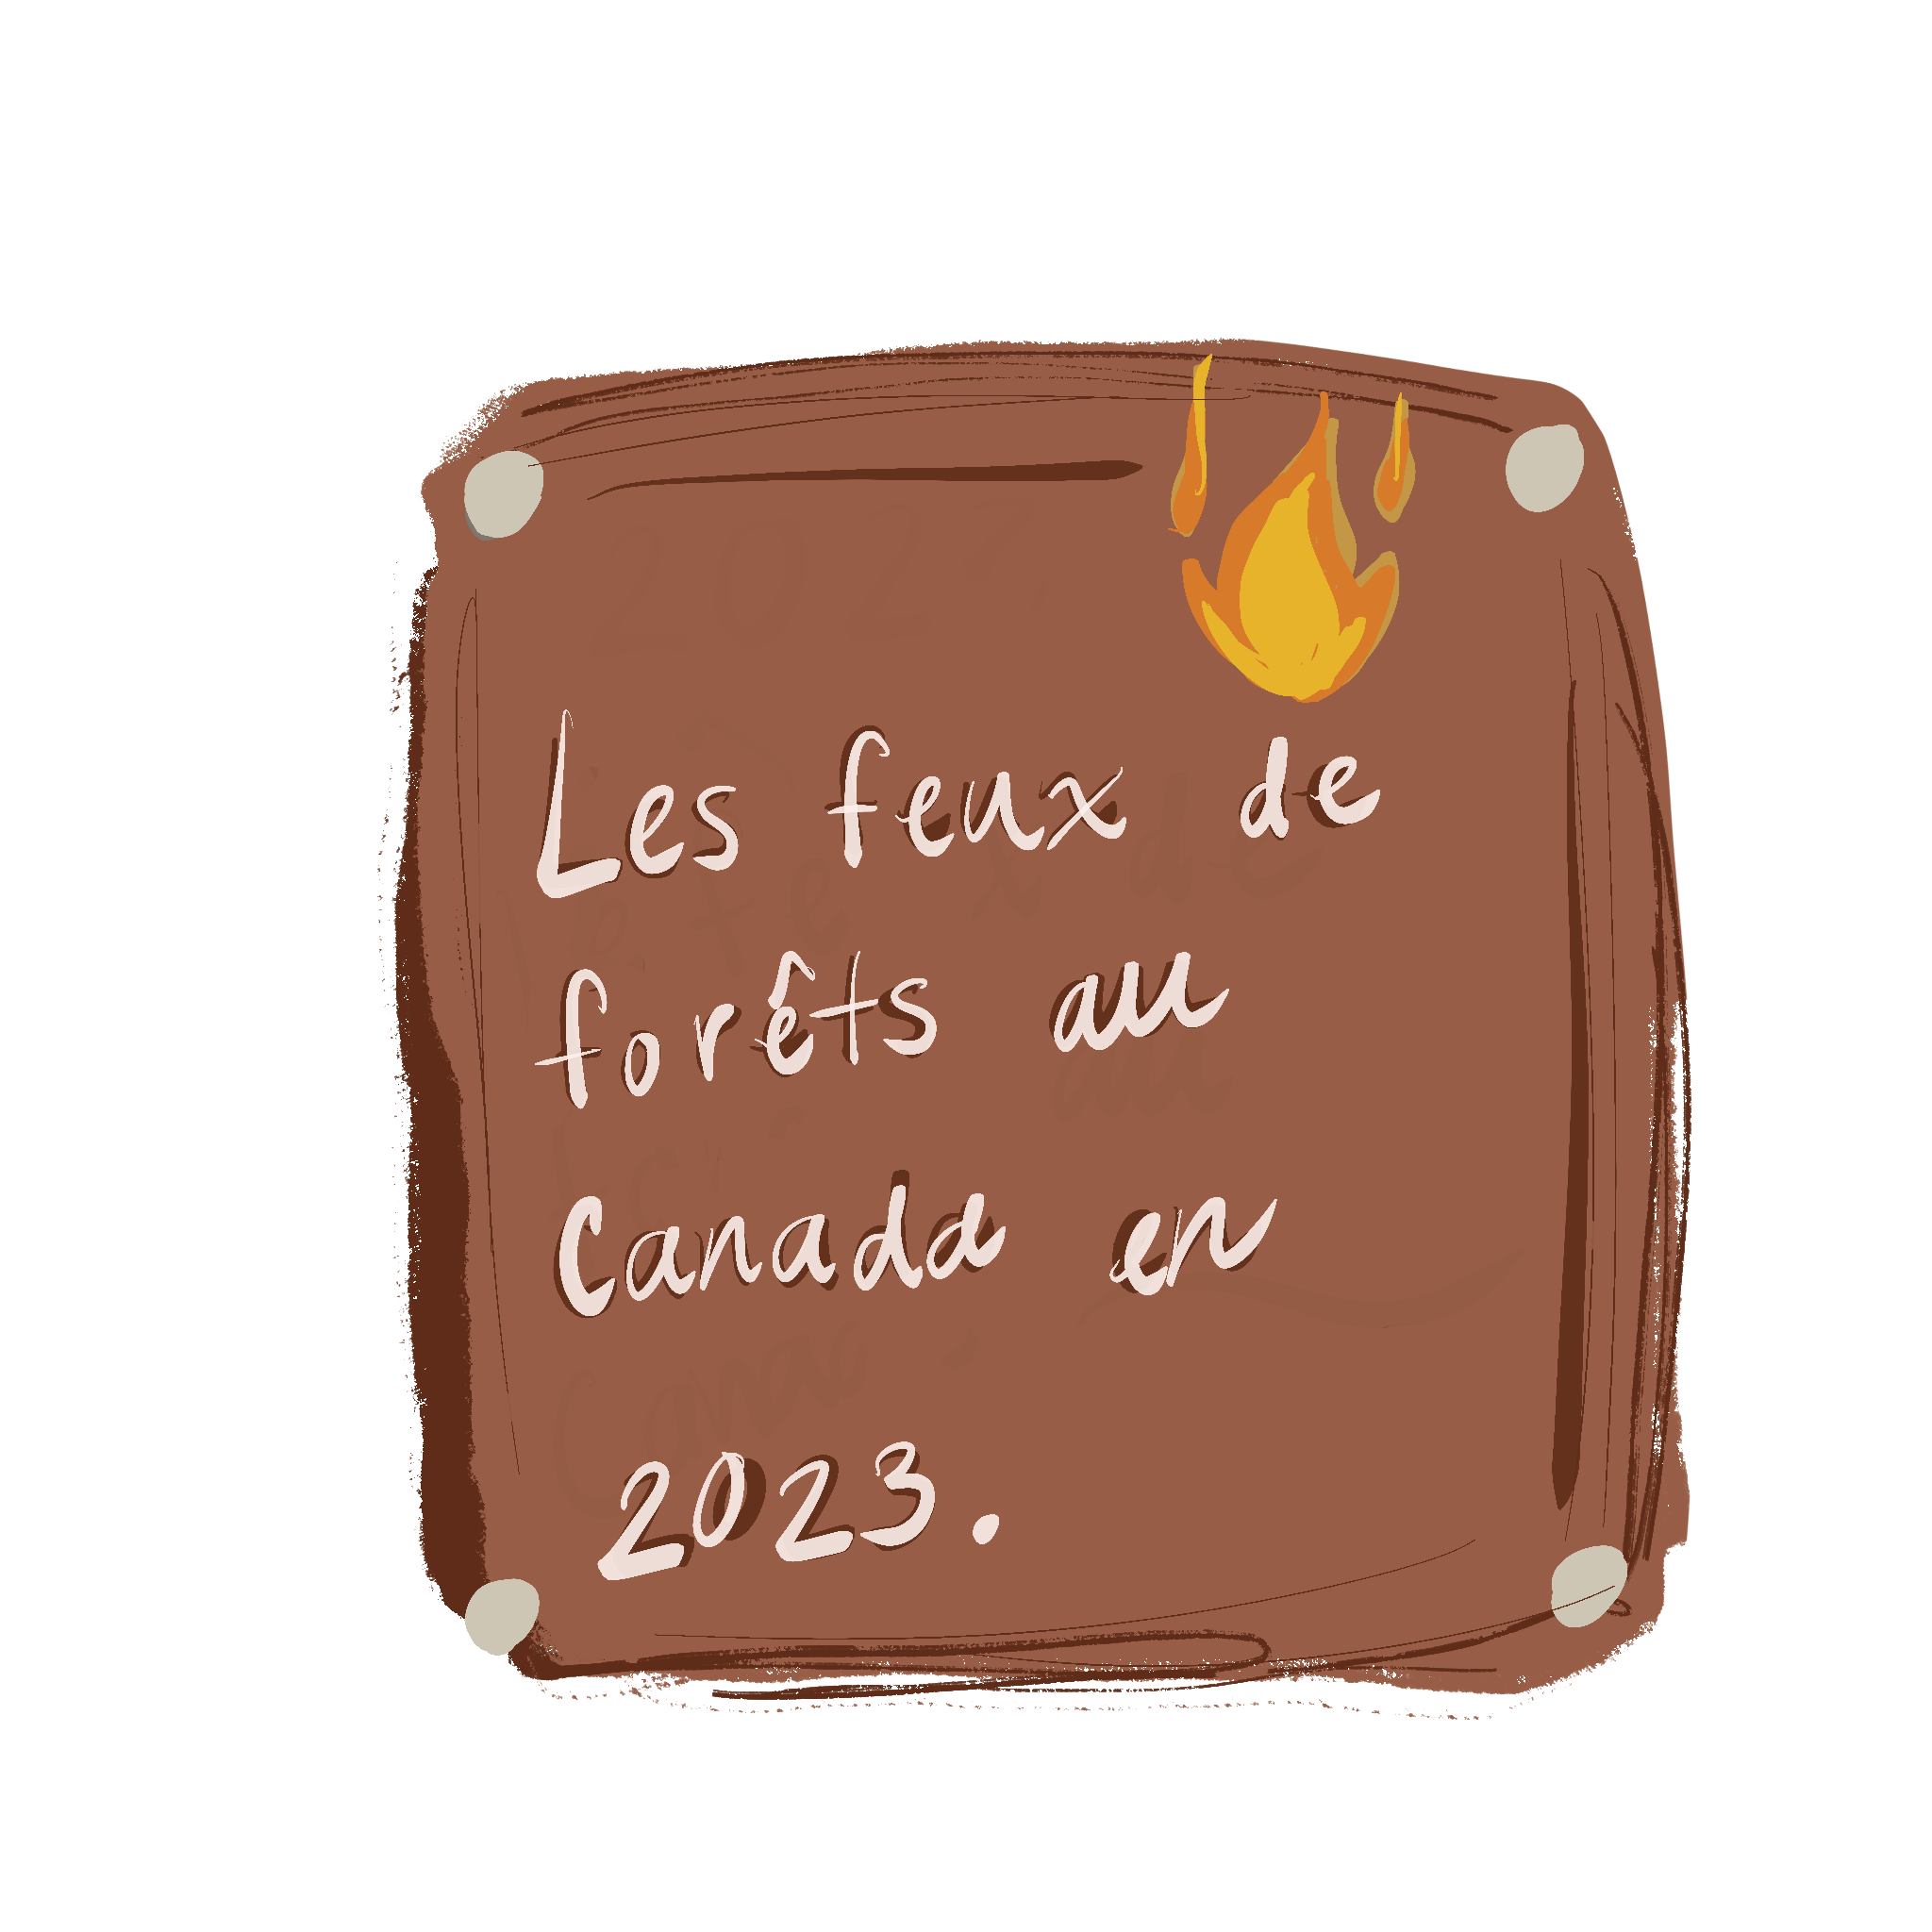 Les feux de
forêts au
Canada en
2023.